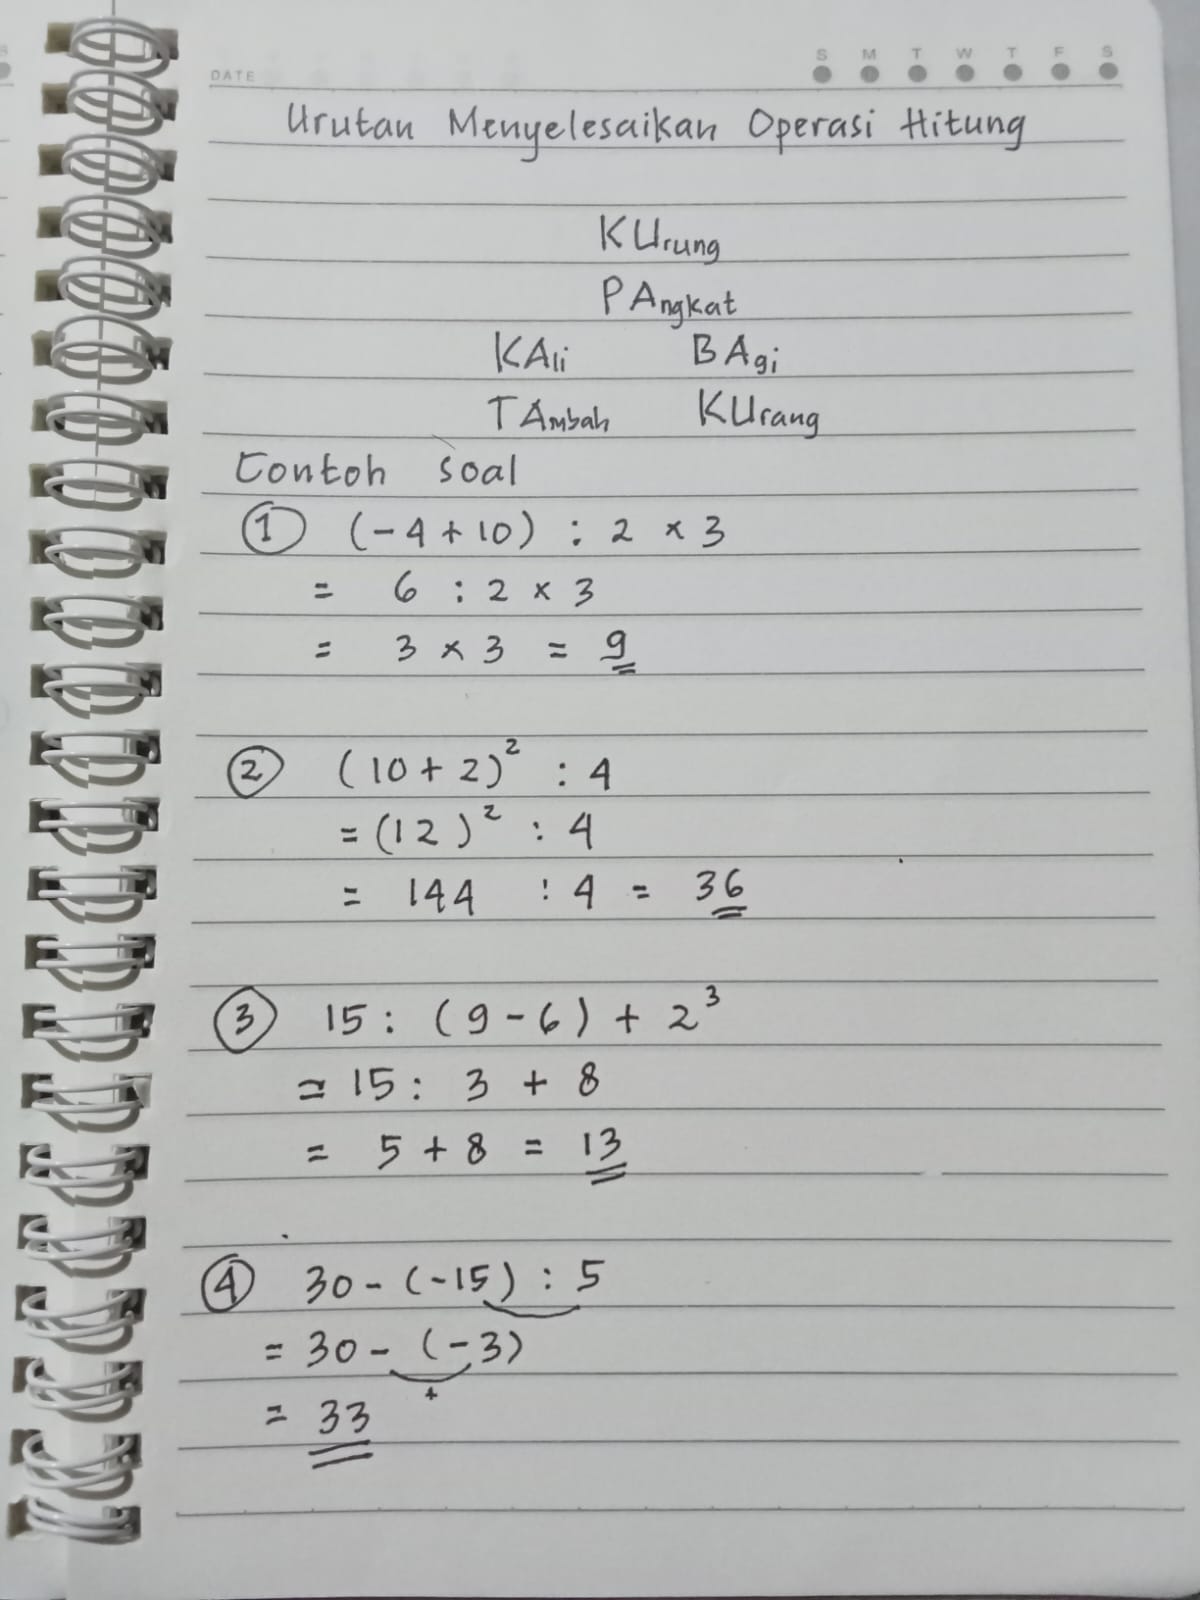 S M T W T F S
DATE
Urutan Menyelesaikan Operasi Hitung
KUrung
PAngkat
KAli BAgi
TAmbah KUrang
Contoh soal
① (-4+10) : 2 × 3
= 6 : 2 × 3
= 3 × 3 = 9
② (10+2)² : 4
= (12)² : 4
= 144 : 4 = 36
③ 15 : (9-6) + 2³
= 15 : 3 + 8
= 5 + 8 = 13
④ 30 - (-15) : 5
= 30 - (-3)
+
= 33